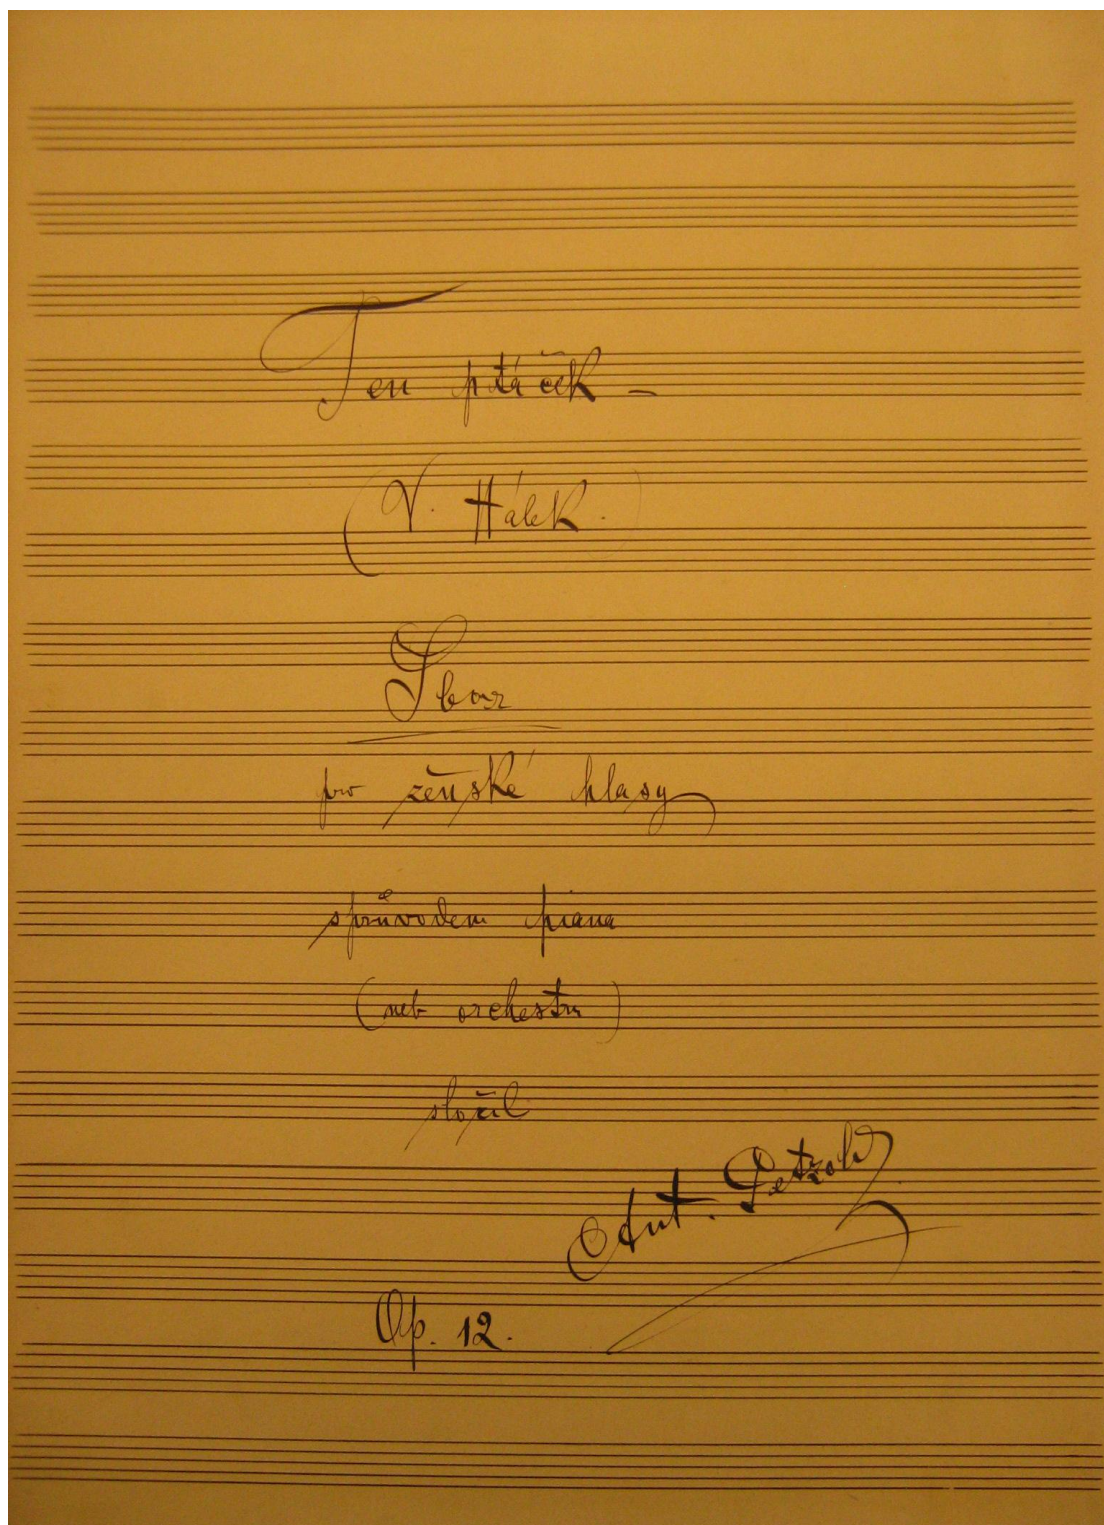 Ten ptáček –
(V. Hálek.)
Sbor
pro ženské hlasy
s průvodem piana
(neb orchestru)
složil
Ant. Petzold
Op. 12.